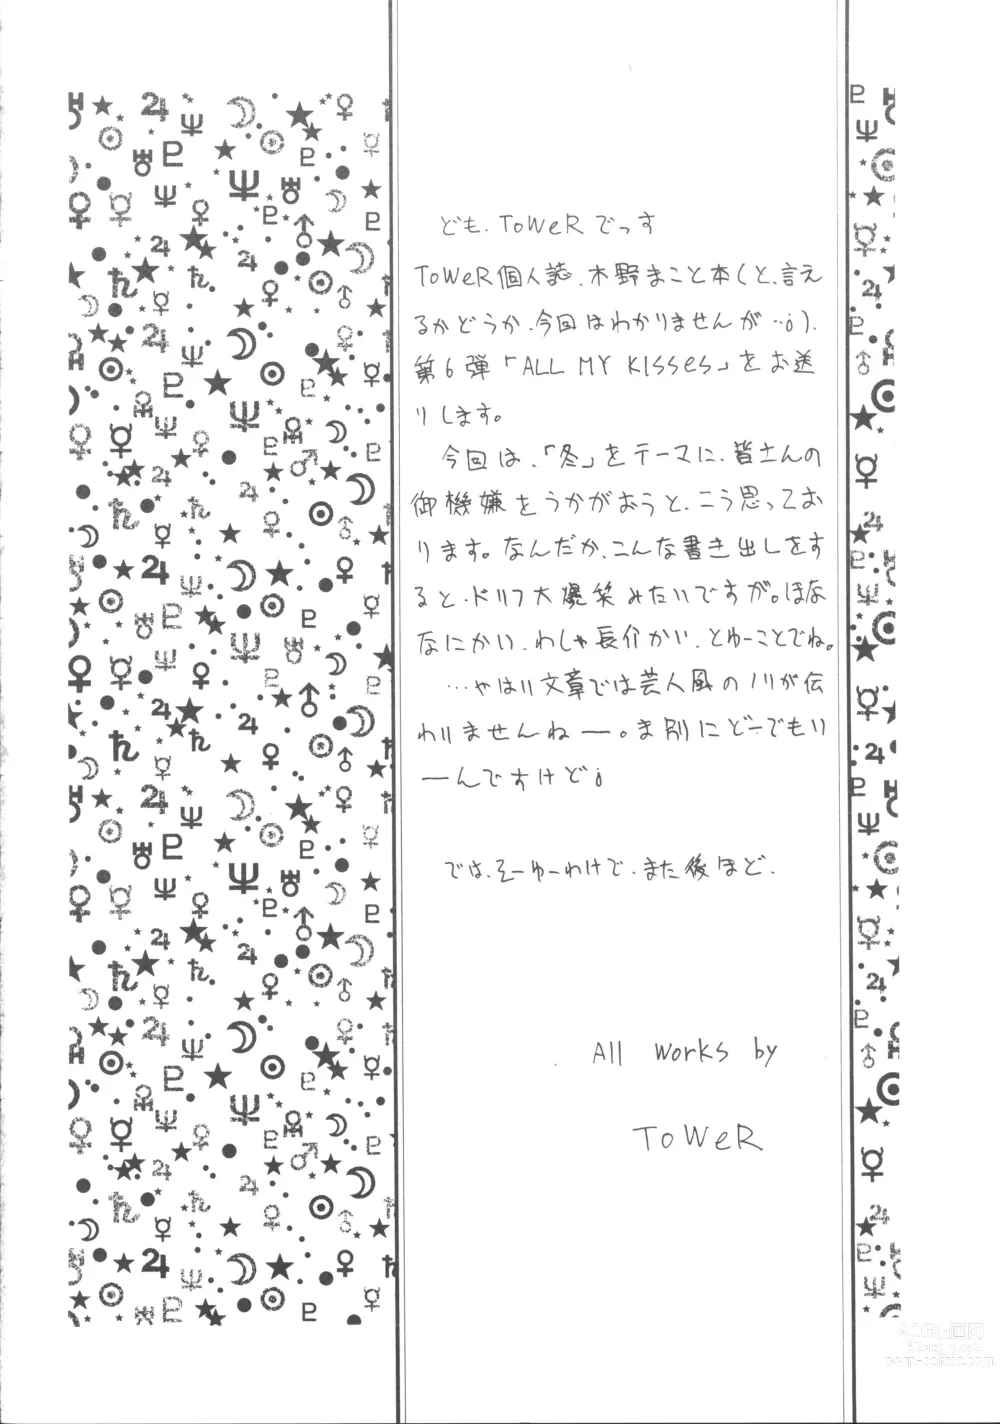 ども、ToWeRでっす
ToWeR個人誌、木野まこと本(と、言え
るかどうか、今回はわかりませんが…i)、
第6弾「ALL MY KISSes」をお送
りします。
今回は、「冬」をテーマに、皆さんの
御機嫌をうかがおうと、こう思ってお
ります。なんだか、こんな書き出しをす
ると、ドリフ大爆笑みたいですが。ほな
なにかい、わしゃ長介かい、とゆーことでね。
…やはり文章では芸人風のノリが伝
わりませんねー。ま別にどーでもい
ーんですけどi
では、そーゆーわけで、また後ほど、
All works by
ToWeR
porn-comic.com